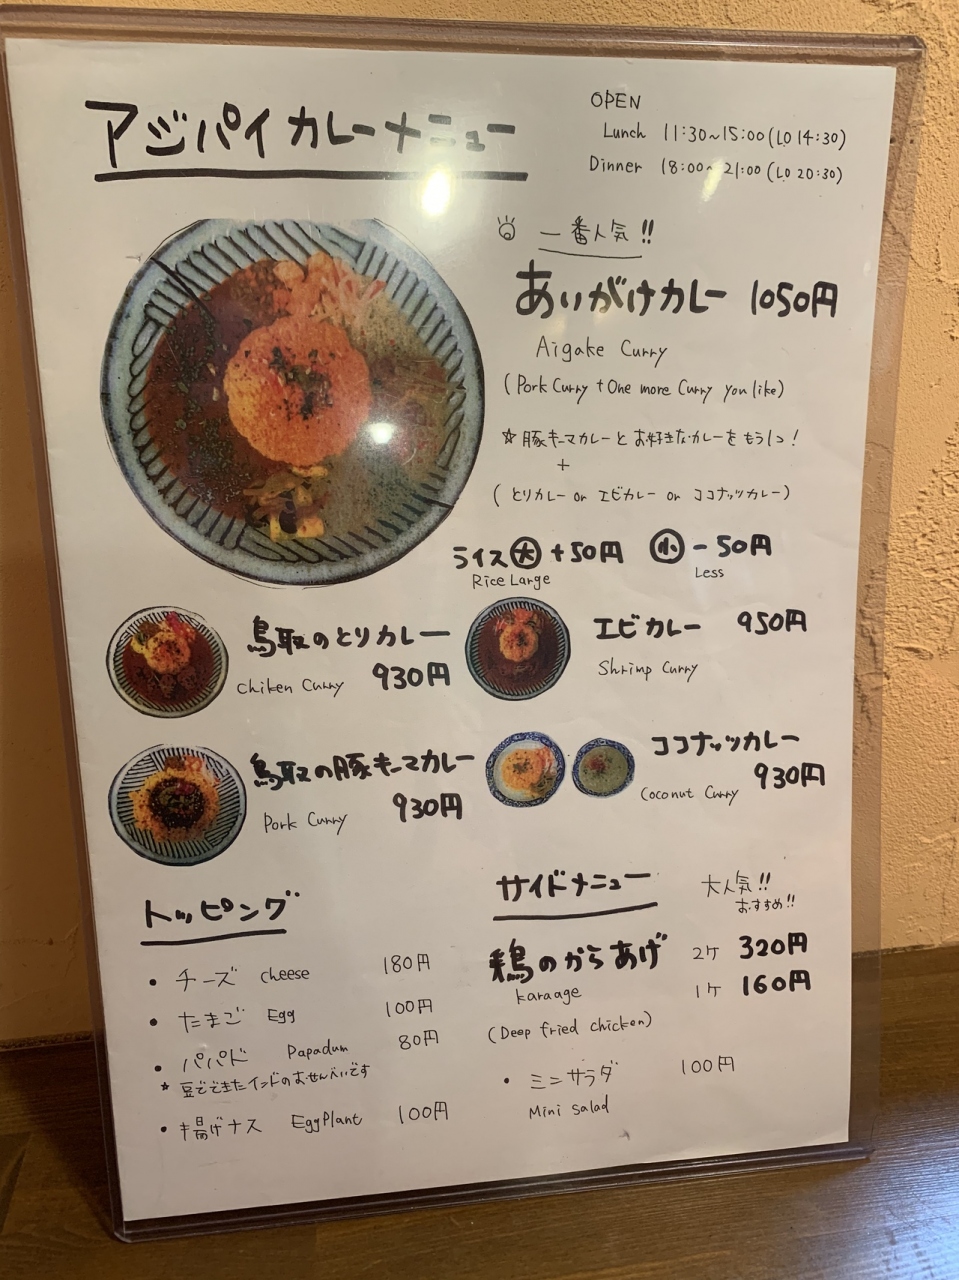 アジパイカレーメニュー
OPEN
Lunch 11:30~15:00 (LO 14:30)
Dinner 18:00~21:00 (LO 20:30)
一番人気!!
あいがけカレー 1050円
Aigake Curry
(Pork Curry + One more Curry you like)
☆豚キーマカレーとお好きなカレーをもう1つ!
+
(とりカレー or エビカレー or ココナッツカレー)
ライス大 +50円 小 -50円
Rice Large Less
鳥取のとりカレー 930円
Chiken Curry
エビカレー 950円
Shrimp Curry
鳥取の豚キーマカレー 930円
Pork Curry
ココナッツカレー 930円
Coconut Curry
トッピング
・チーズ cheese 180円
・たまご Egg 100円
・パパド Papadum 80円
☆豆でできたインドのおせんべいです
・揚げナス EggPlant 100円
サイドメニュー
大人気!!
おすすめ!!
鶏のからあげ 2ケ 320円
karaage 1ケ 160円
(Deep fried chicken)
・ミニサラダ 100円
Mini salad